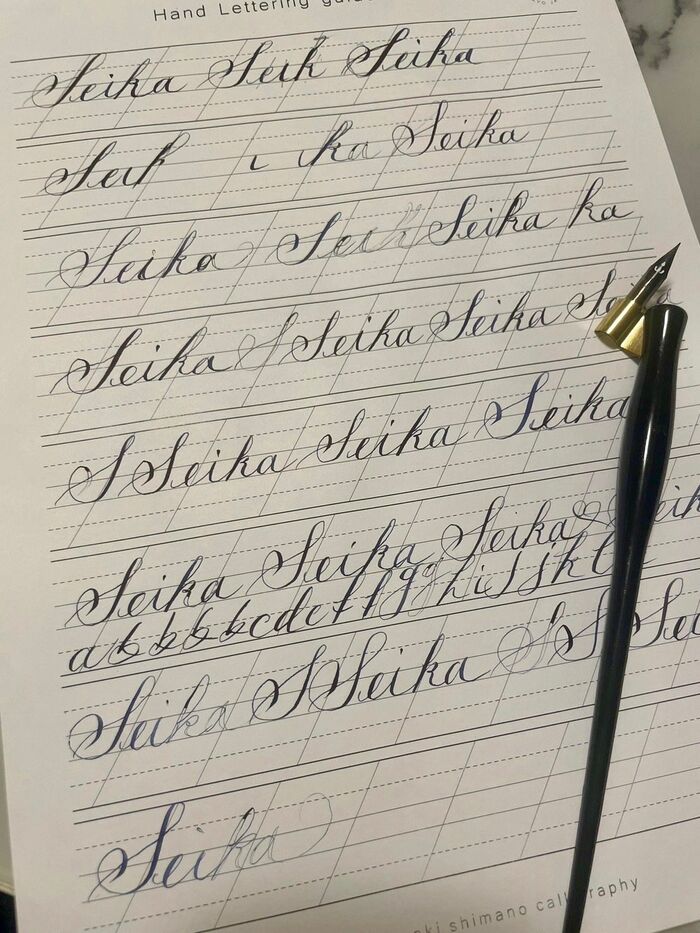 Hand Lettering
Seika Seik Seika
Seik i ka Seika
Seika Seik Seika ka
Seika S Seika Seika
S Seika Seika Seika
Seika Seika Seika eik
abbbbcdeffgghijjkl
Seika S Seika S S Sei
Seika
shimano